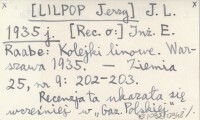 [LILPOP Jerzy] J. L.
1935 j. [Rec. o:] Inż. E.
Raabe: Kolejki linowe. War-
szawa 1935. — Ziemia
25, nr 9: 202-203.
Recenzja ta ukazała się
wcześniej w „Gaz. Polskiej"